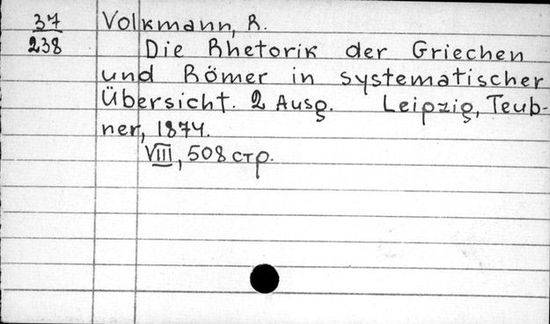 37 Volkmann, R.
238 Die Rhetorik der Griechen
und Römer in systematischer
Übersicht. 2 Ausg. Leipzig, Teub-
ner, 1874.
VIII, 508 стр.